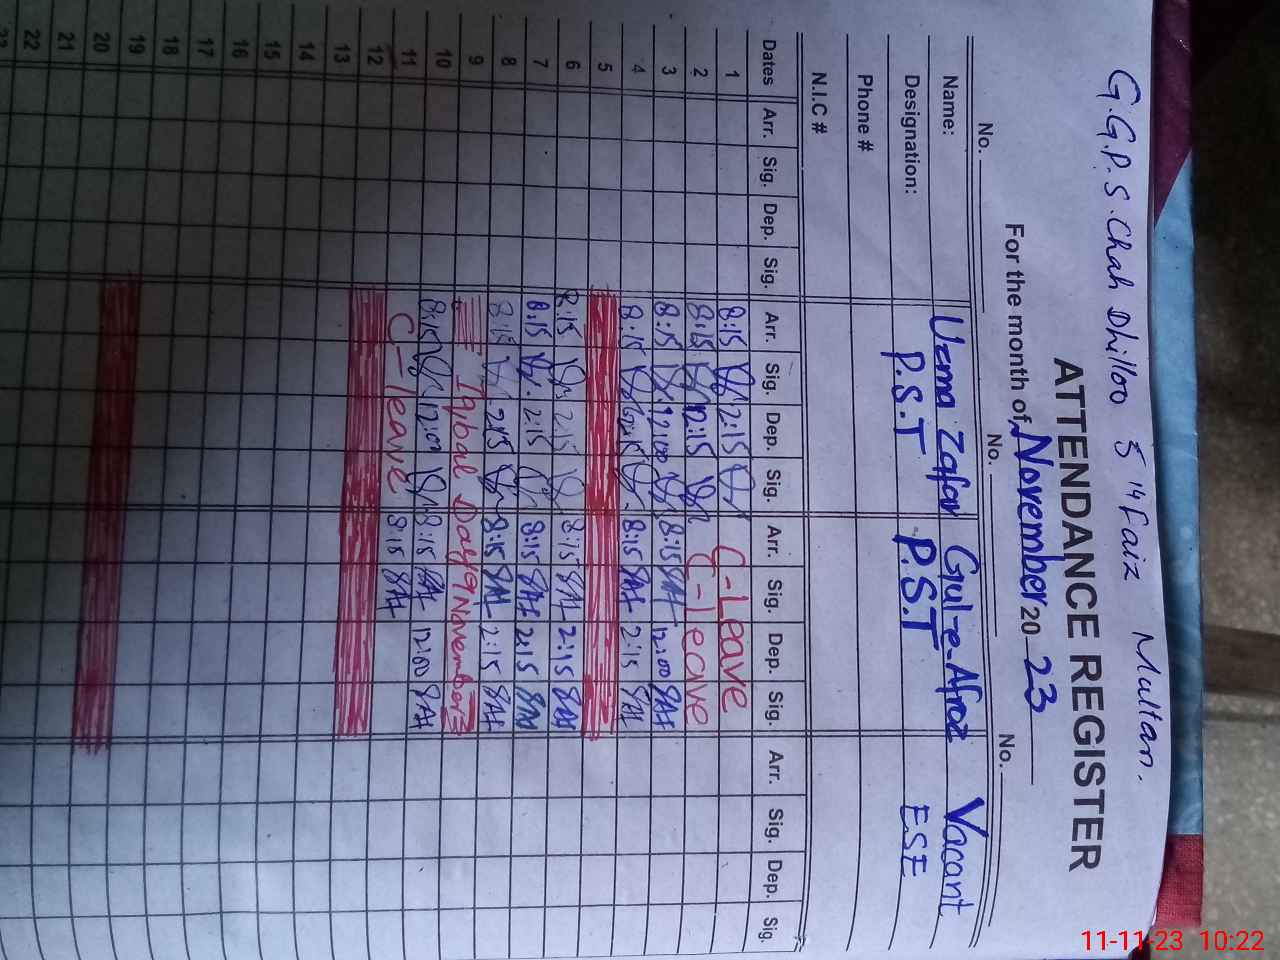 G.G.P.S. Chah Dhilloo 5 14 Faiz Multan.
ATTENDANCE REGISTER
For the month of November 20 23
No. No. No.
Name: Uzma Zafar Gul-e-Afroz Vacant
Designation: P.S.T P.S.T ESE
Phone #
N.I.C #
Dates Arr. Sig. Dep. Sig. Arr. Sig. Dep. Sig. Arr. Sig. Dep. Sig. Arr. Sig. Dep. Sig.
1 8:15 2:15 C-Leave
2 8:15 12:15 C-leave
3 8:15 12:00 8:15 SAH 12:00 SAH
4 8:15 8:15 SAH 2:15 SAH
5
6 8:15 2:15 8:15 SAH 2:15 SAH
7 8:15 2:15 8:15 SAH 2:15 SAH
8 8:15 2:15 8:15 SAH 2:15 SAH
9 Iqbal Day 9 November
10 8:15 12:00 8:15 SAH 12:00 SAH
11 C-leave 8:15 SAH
12
13
14
15
16
17
18
19
20
21
22
23
11-11-23 10:22